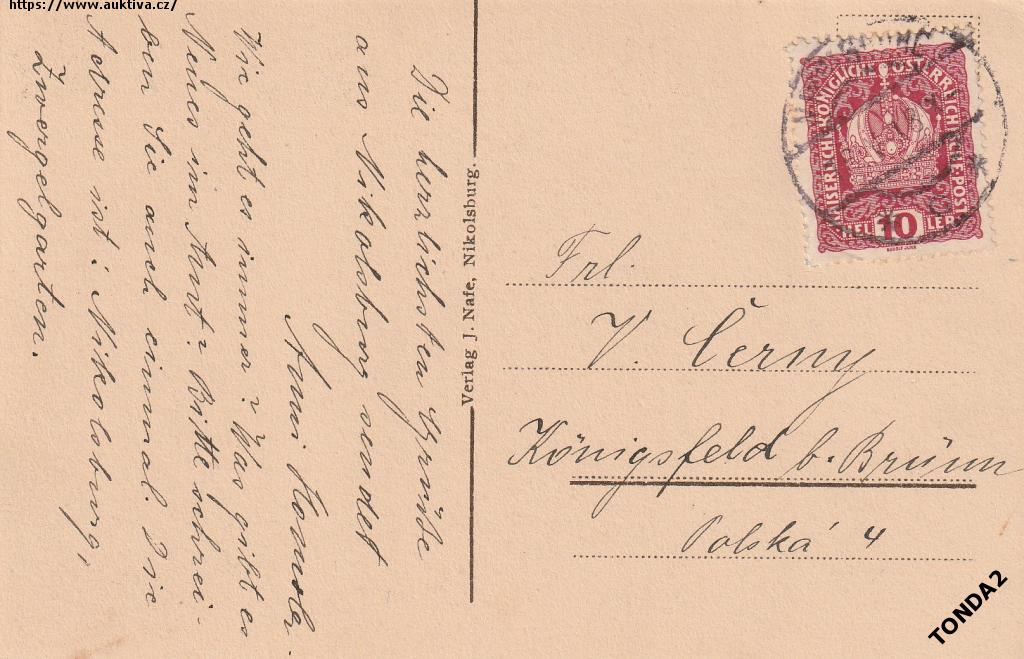 https://www.auktiva.cz/
Die herrlichsten Grüße
aus Nikolsburg sendet
Anni
Wie geht es immer? Was gibt es
Neues im Amt? Bitte schrei-
ben Sie auch einmal. Die
Adresse ist: Nikolsburg,
Zwergelgarten.
Verlag J. Nafe, Nikolsburg.
KAISERLICHE KÖNIGLICHE ÖSTERREICHISCHE POST
HEL 10 LER
Frl.
V. Černy
Königsfeld b. Brünn
Polská 4
TONDA2